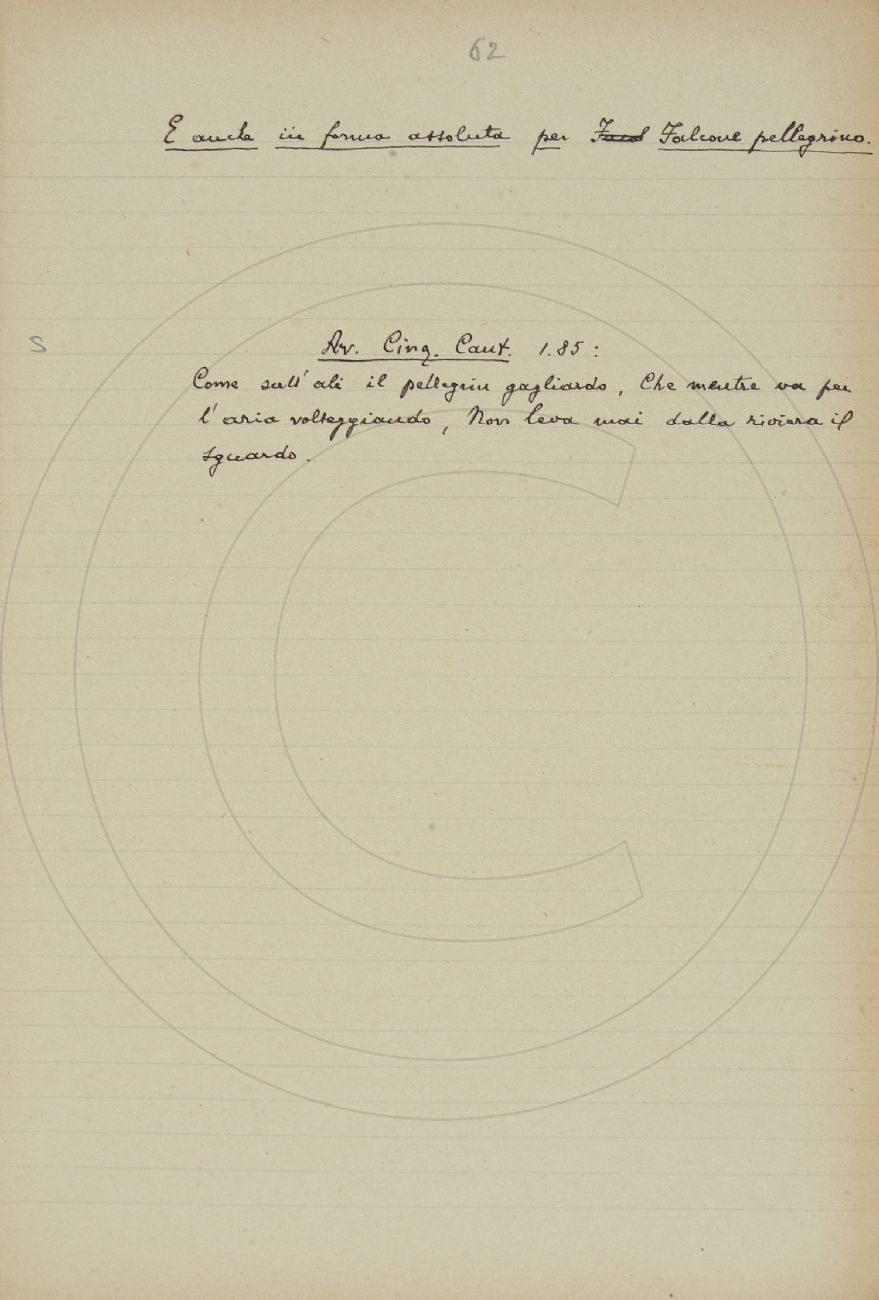 62
E anche in forma assoluta per Falcone pellegrino.
S
Av. Cinq. Cant. 1.85:
Come sull'ali il pellegrin gagliardo, Che mentre va per
l'aria volteggiando, Non leva mai dalla riviera il
sguardo.